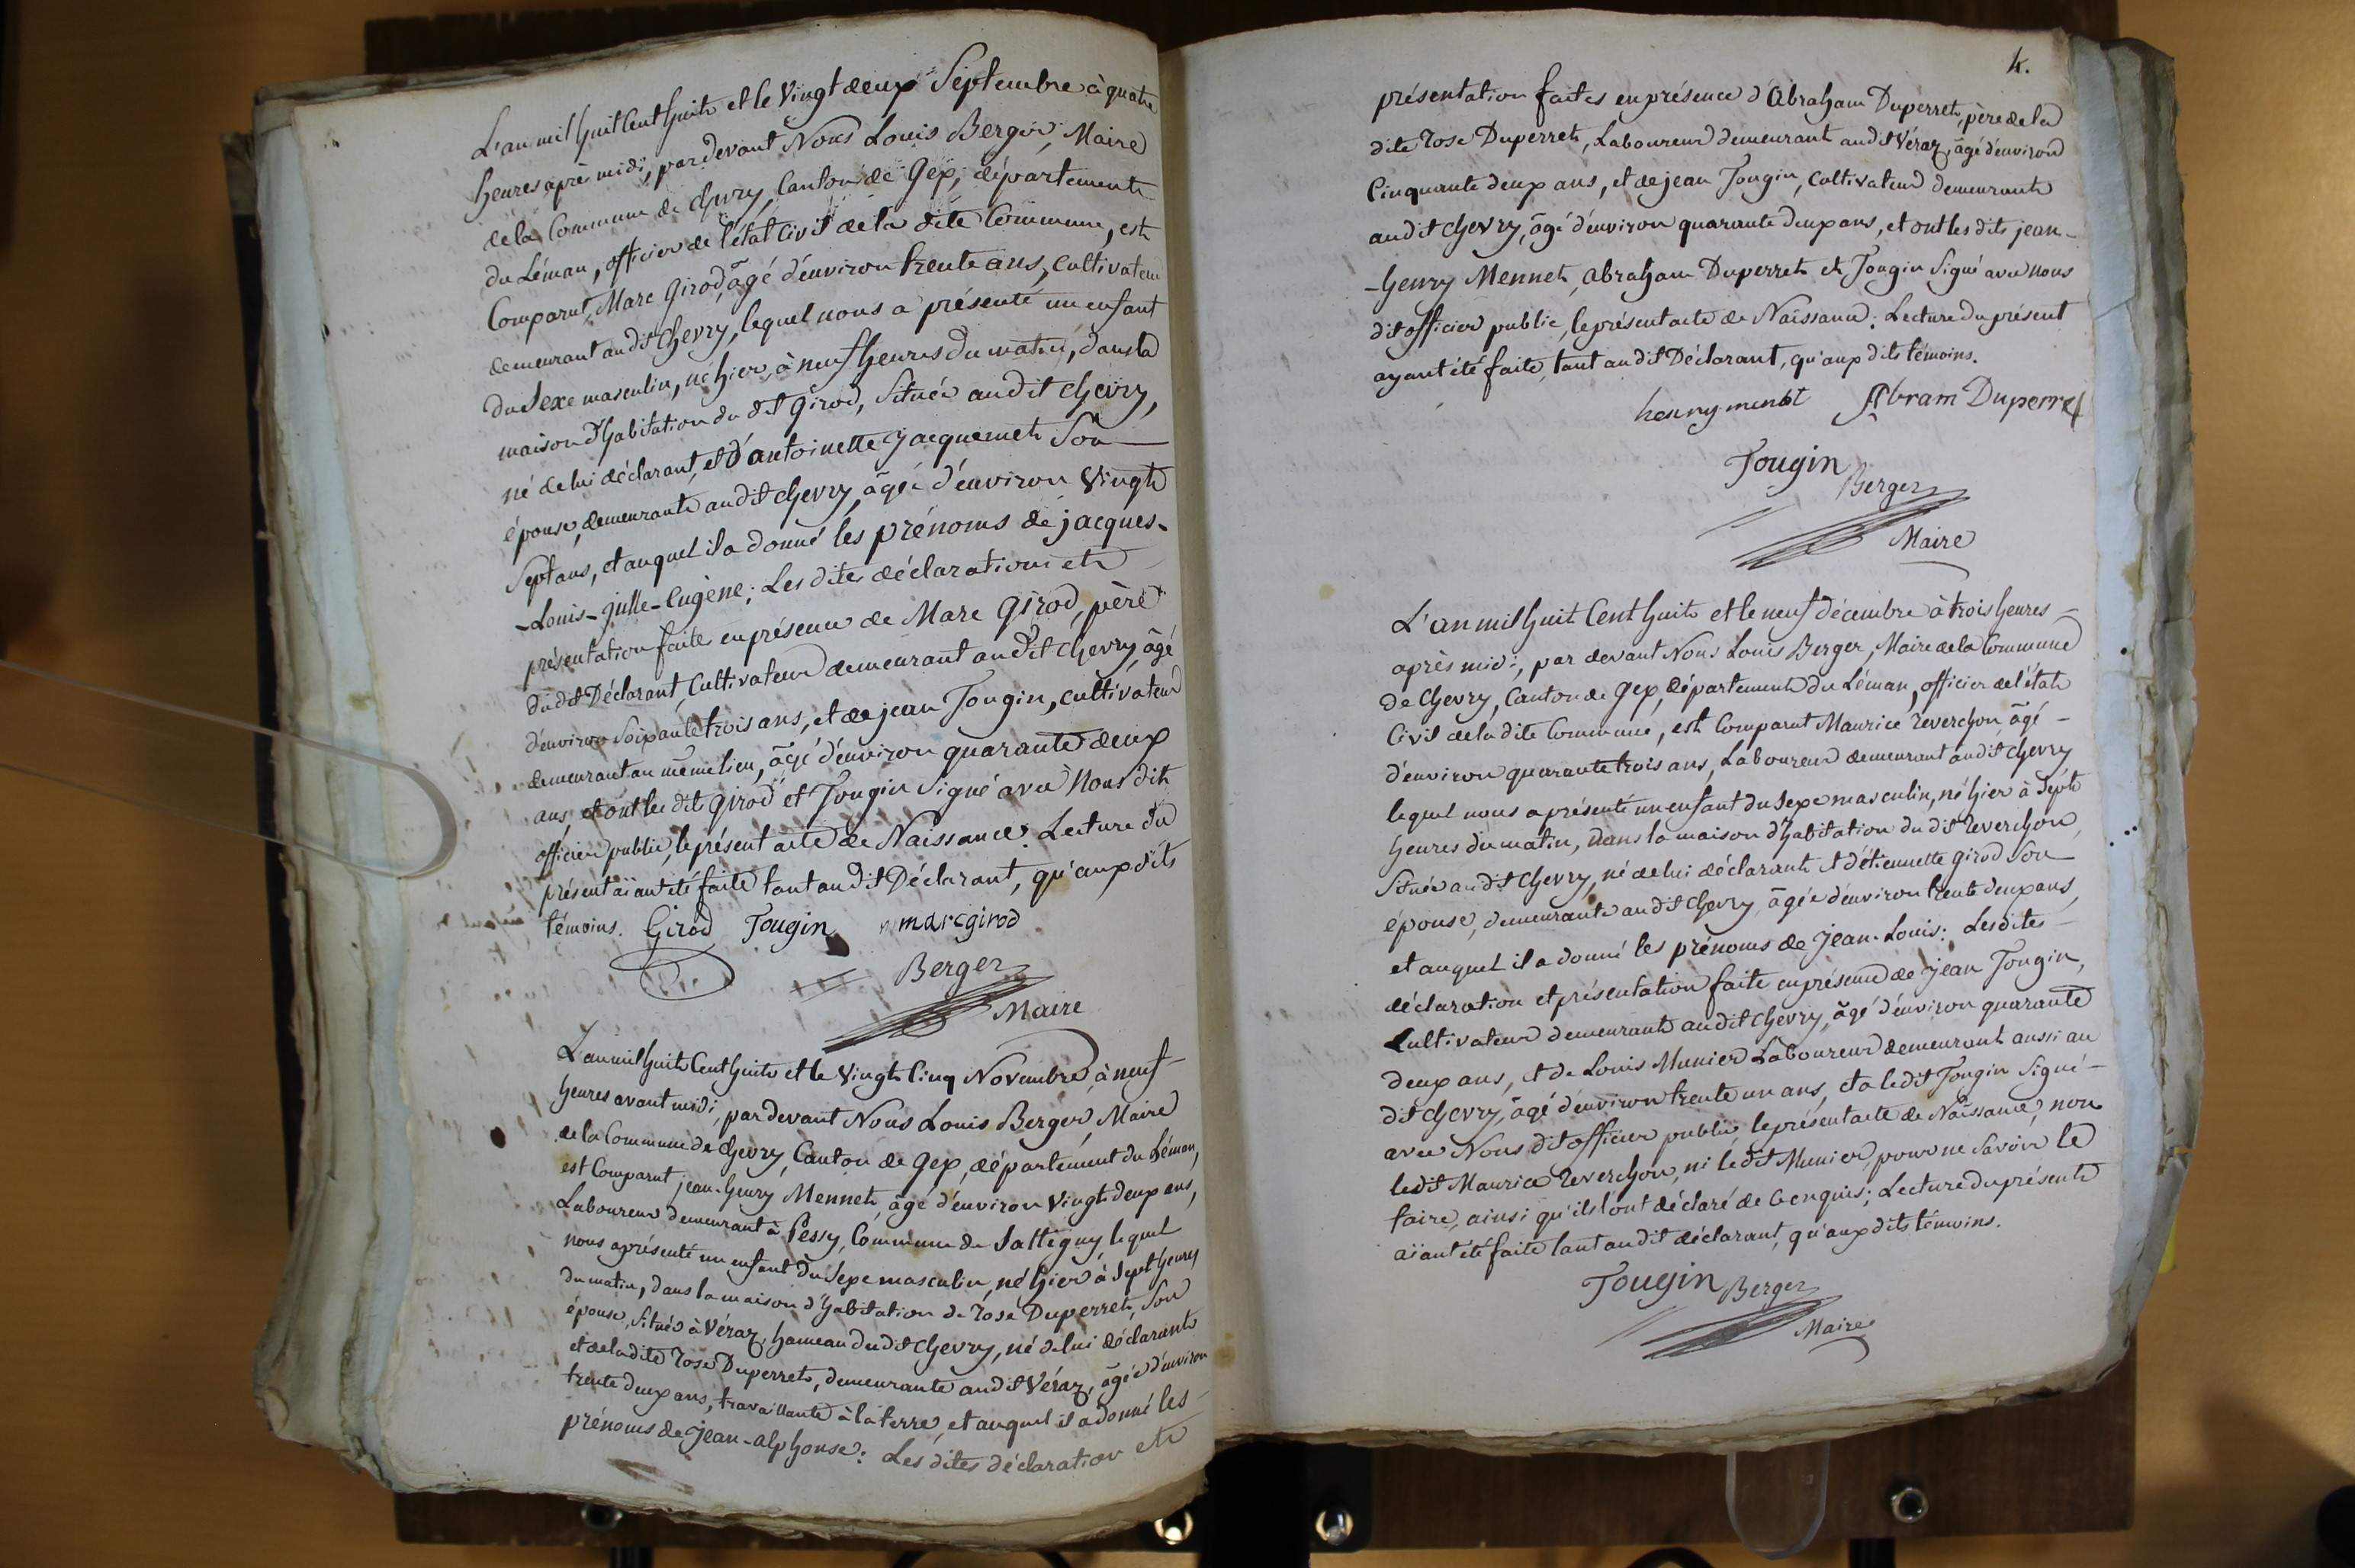 L'an mil huit Cent huit et le Vingt deux Septembre à quatre
heures après midi, par devant Nous Louis Berger, Maire
de la Commune de Chevry, Canton de Gex, département
du Léman, officier de l'état Civil de la dite Commune, est
Comparut, Marc Girod, âgé d'environ trente ans, Cultivateur
demeurant au dit Chevry, lequel nous a présenté un enfant
du Sexe masculin, né hier, à neuf heures du matin, dans la
maison d'habitation du dit Girod, Située au dit Chevry,
né de lui déclarant, et d'antoinette Jacquemet Son
épouse, demeurante au dit Chevry, âgée d'environ Vingt
Sept ans, et auquel il a donné les prénoms de jacques-
-Louis-Julle-Eugène; Les dites déclarations et
présentation faite en présence de Marc Girod, père
du dit Déclarant, Cultivateur demeurant au dit Chevry, âgé
d'environ Soixante trois ans, et de jean Tougin, cultivateur
demeurant au même lieu, âgé d'environ quarante deux
ans, et ont les dits Girod et Tougin Signé avec Nous dit
officier public, le présent acte de Naissance. Lecture du
présent aïant été faite tant au dit Déclarant, qu'aux dits
témoins. Girod Tougin marc girod
Berger
Maire
L'an mil huit Cent huit et le Vingt Cinq Novembre, à neuf
heures avant midi, par devant Nous Louis Berger, Maire
de la Commune de Chevry, Canton de Gex, département du Léman,
est Comparut jean-henry Mennet, âgé d'environ Vingt deux ans,
Laboureur demeurant à Pessy, Commune de Sattigny, lequel
nous a présenté un enfant du Sexe masculin, né hier à Sept heures
du matin, dans la maison d'habitation de Rose Duperret, Son
épouse, Située à Véraz, hameau du dit Chevry, né de lui déclarant
et de la dite Rose Duperret, demeurante au dit Véraz, âgée d'environ
trente deux ans, travaillante à la terre, et auquel il a donné les
prénoms de Jean-alphonse: Les dites déclaration et
4.
présentation faites en présence d'Abraham Duperret, père de la
dite Rose Duperret, Laboureur demeurant au dit Véraz, âgé d'environ
Cinquante deux ans, et de jean Tougin, Cultivateur demeurant
au dit Chevry, âgé d'environ quarante deux ans, et ont les dits jean-
-henry Mennet, Abraham Duperret et Tougin Signé avec nous
dit officier public, le présent acte de Naissance. Lecture du présent
ayant été faite, tant au dit Déclarant, qu'aux dits témoins.
henry menot Abram Duperret
Tougin
Berger
Maire
L'an mil huit Cent huit et le neuf décembre à trois heures
après midi, par devant Nous Louis Berger, Maire de la Commune
de Chevry, Canton de Gex, département du Léman, officier de l'état
Civil de la dite Commune, est Comparut Maurice Reverchon, âgé
d'environ quarante trois ans, Laboureur demeurant au dit Chevry
lequel nous a présenté un enfant du Sexe masculin, né hier à Sept
heures du matin, dans la maison d'habitation du dit Reverchon,
Située au dit Chevry, né de lui déclarant et d'étiennette Girod Son
épouse, demeurante au dit Chevry, âgée d'environ trente deux ans,
et auquel il a donné les prénoms de Jean-Louis: Les dites
déclaration et présentation faite en présence de jean Tougin,
Cultivateur demeurant au dit Chevry, âgé d'environ quarante
deux ans, et de Louis Munier Laboureur demeurant aussi au
dit Chevry, âgé d'environ trente un ans, et a le dit Tougin Signé
avec Nous dit officier public, le présent acte de Naissance, non
le dit Maurice Reverchon, ni le dit Munier, pour ne Savoir le
faire, ainsi qu'ils l'ont déclaré de ce enquis; Lecture du présent
aïant été faite tant au dit déclarant, qu'aux dits témoins.
Tougin Berger
Maire